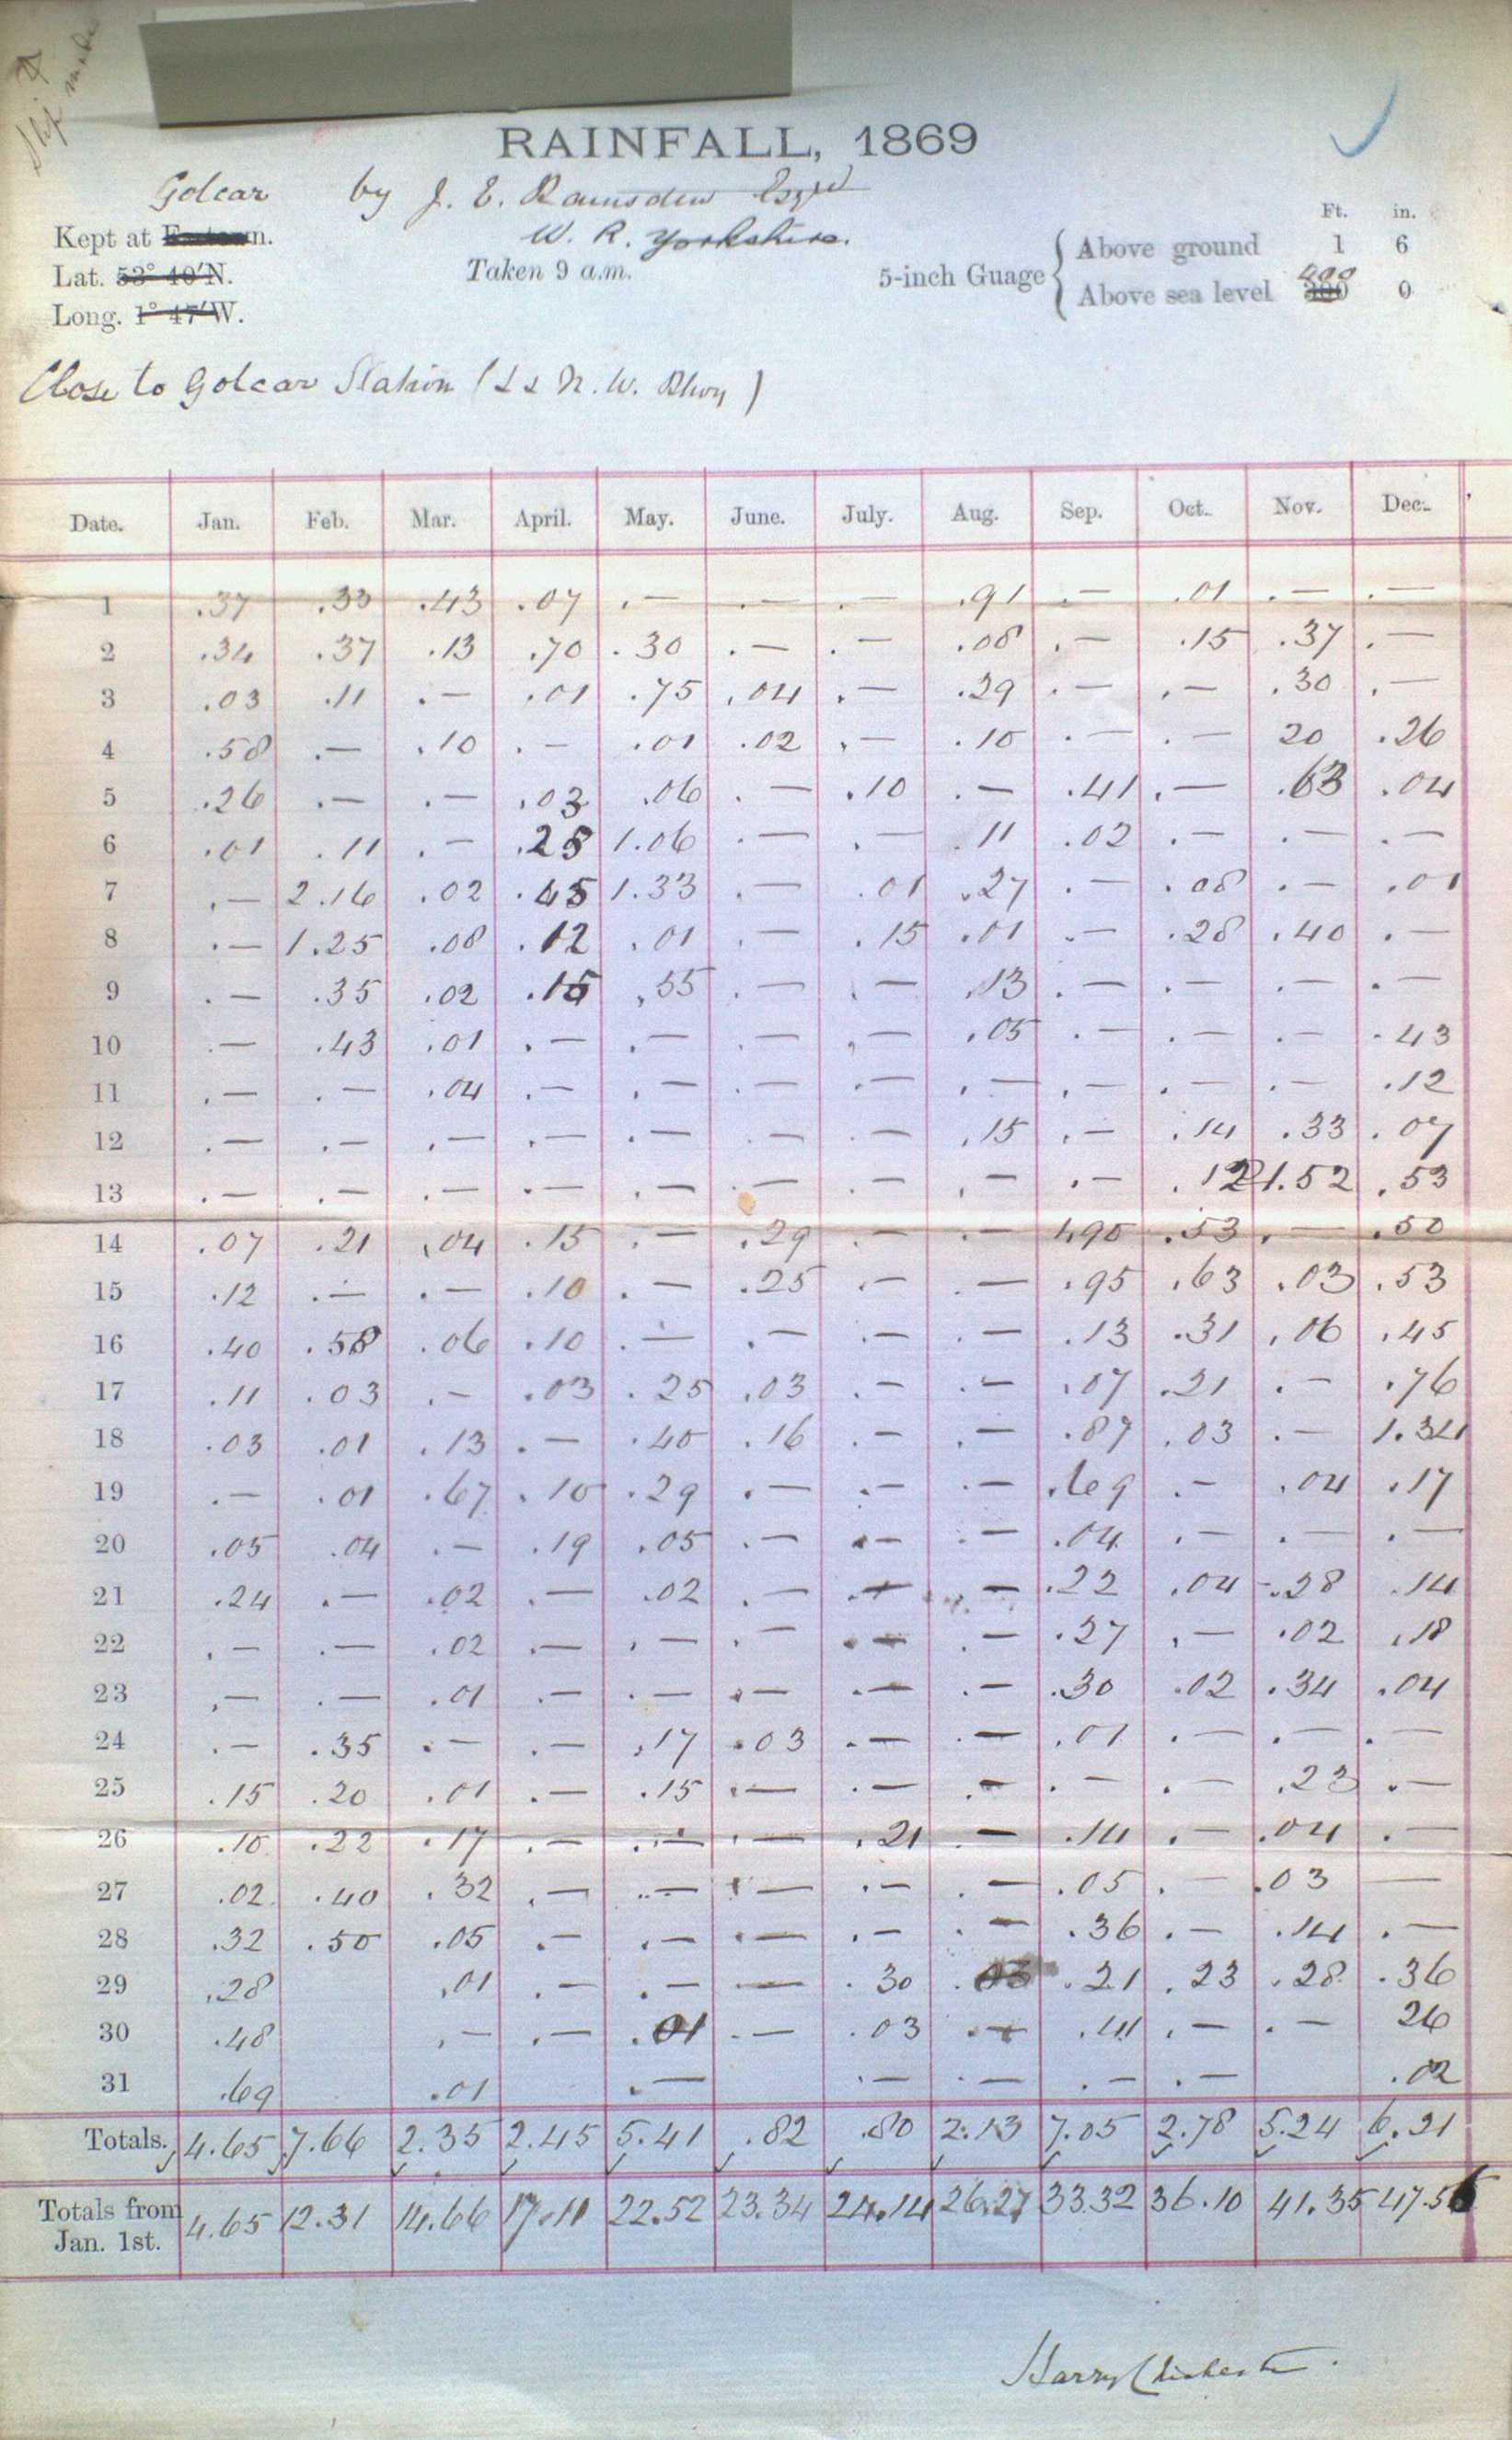 Slip made
RAINFALL, 1869
Golcar by J. E. Ramsden Esqre
W. R. Yorkshire.
Kept at n.
Lat. 53° 40′ N.
Long. 1° 47′ W.
Taken 9 a.m.
5-inch Guage
Ft. in.
Above ground 1 6
Above sea level 400 300 0
Close to Golcar Station (L & N. W. Rlwy)
Date. Jan. Feb. Mar. April. May. June. July. Aug. Sep. Oct. Nov. Dec.
1 .37 .33 .43 .07 .— .— .— .91 .— .01 .— .—
2 .34 .37 .13 .70 .30 .— .— .08 .— .15 .37 .—
3 .03 .11 .— .01 .75 .04 .— .29 .— .— .30 .—
4 .58 .— .10 .— .01 .02 .— .10 .— .— 20 .26
5 .26 .— .— .03 .06 .— .10 .— .41 .— .63 .04
6 .01 .11 .— .25 1.06 .— .— .11 .02 .— .— .—
7 .— 2.16 .02 .45 1.33 .— .01 .27 .— .08 .— .01
8 .— 1.25 .08 .12 .01 .— .15 .01 .— .28 .40 .—
9 .— .35 .02 .15 .55 .— .— .13 .— .— .— .—
10 .— .43 .01 .— .— .— .— .05 .— .— .— .43
11 .— .— .04 .— .— .— .— .— .— .— .— .12
12 .— .— .— .— .— .— .— .15 .— .14 .33 .07
13 .— .— .— .— .— .— .— .— .— .12 1.52 .53
14 .07 .21 .04 .15 .— .29 .— .— 1.90 .53 .— .50
15 .12 .— .— .10 .— .25 .— .— .95 .63 .03 .53
16 .40 .58 .06 .10 .— .— .— .— .13 .31 .06 .45
17 .11 .03 .— .03 .25 .03 .— .— .07 .21 .— .76
18 .03 .01 .13 .— .40 .16 .— .— .87 .03 .— 1.34
19 .— .01 .67 .10 .29 .— .— .— .69 .— .04 .17
20 .05 .04 .— .19 .05 .— .— .— .04 .— .— .—
21 .24 .— .02 .— .02 .— .— .— .22 .04 .28 .14
22 .— .— .02 .— .— .— .— .— .27 .— .02 .18
23 .— .— .01 .— .— .— .— .— .30 .02 .34 .04
24 .— .35 .— .— .17 .03 .— .— .01 .— .— .—
25 .15 .20 .01 .— .15 .— .— .— .— .— .23 .—
26 .10 .22 .17 .— .— .— .21 .— .14 .— .04 .—
27 .02 .40 .32 .— .— .— .— .— .05 .— .03 —
28 .32 .50 .05 .— .— .— .— .— .36 .— .14 .—
29 .28 .01 .— .— .— .30 .03 .21 .23 .28 .36
30 .48 .— .— .01 .— .03 .— .14 .— .— 26
31 .69 .01 .— .— .— .— .— .02
Totals. 4.65 7.66 2.35 2.45 5.41 .82 .80 2.13 7.05 2.78 5.24 6.21
Totals from
Jan. 1st. 4.65 12.31 14.66 17.11 22.52 23.34 24.14 26.27 33.32 36.10 41.35 47.56
Harry Chichester.